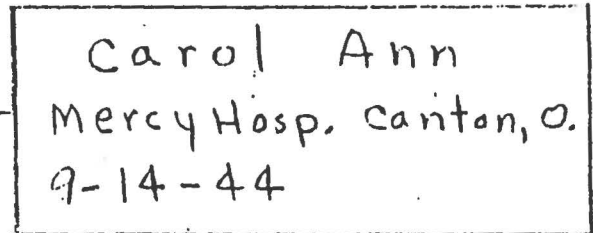 Carol Ann
Mercy Hosp. Canton, O.
9-14-44